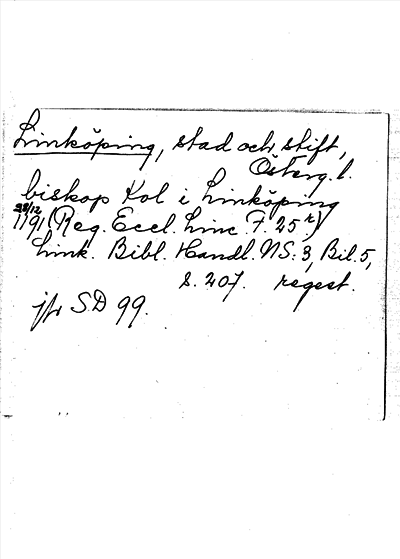 Linköping, stad och stift,
Österg. l.
biskop Kol i Linköping
28/12
1191 (Reg. Eccl. Linc. F. 25 r.)
Link. Bibl. Handl. NS: 3, Bil. 5,
s. 207. regest.
jfr SD 99.